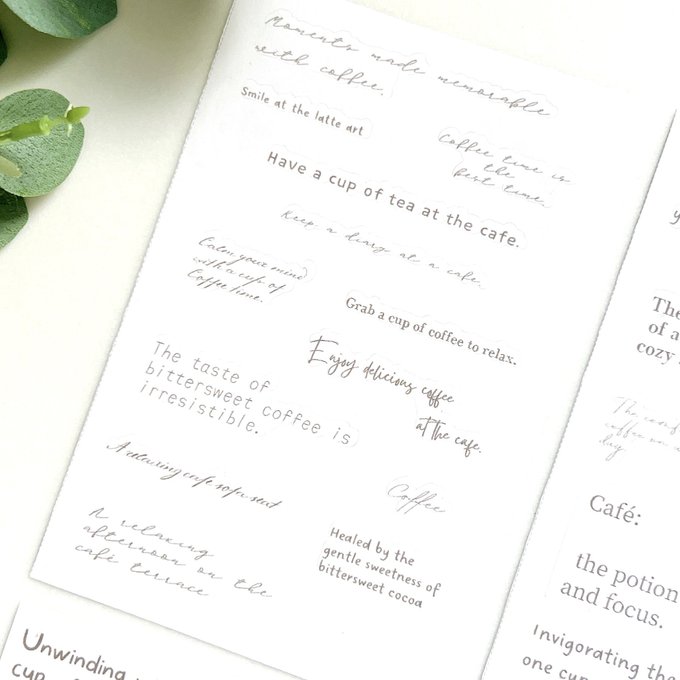 Moments made memorable
with coffee.
Smile at the latte art
Coffee time is
the
best time.
Have a cup of tea at the cafe.
Keep a diary at a cafe.
Calm your mind
with a cup of
Coffee time.
Grab a cup of coffee to relax.
Enjoy delicious coffee
at the cafe.
The taste of
bittersweet coffee is
irresistible.
A relaxing cafe sofa seat
Coffee
A relaxing
afternoon on the
café terrace
Healed by the
gentle sweetness of
bittersweet cocoa
The
of a
cozy
The
coffee on a
day
Café:
the potion
and focus.
Invigorating the
one cup
Unwinding
cup